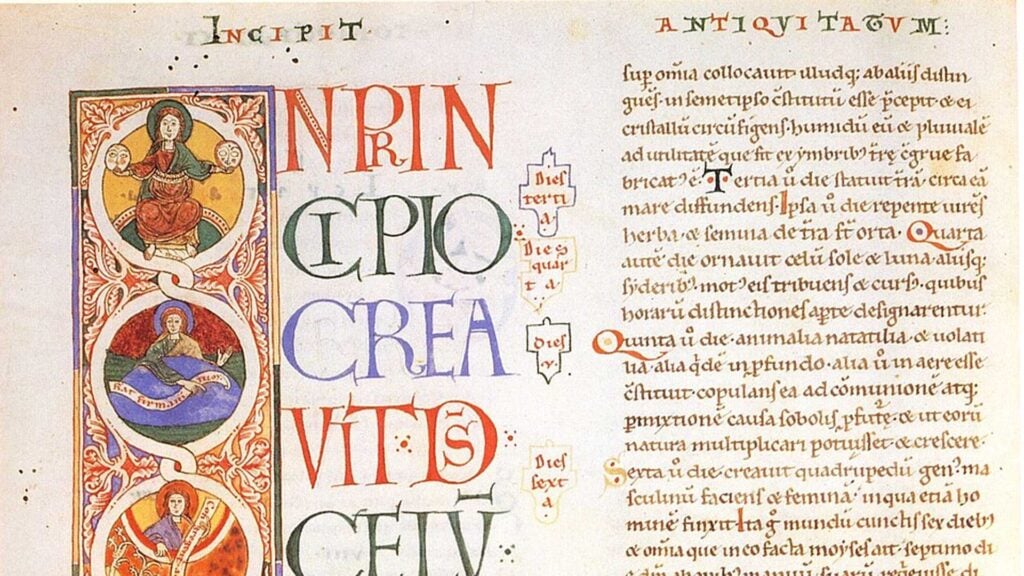 INCIPIT
ANTIQUITATUM:
INPRIN
CIPIO
CREA
VIT DS
CELV̄
Dies
terti
a
Dies
quar
ta
Dies
v.
Dies
sext
a
sup̱ om̄ia collocauit illudq; ab aliis distin
gues. in semetipso c̄stitutū esse p̄cepit & ei
cristallū circūfigens. humidū eū & pluuialē
ad utilitatē que fit ex ymbrib; t̄rę c̄grue fa
bricat; ē. Tertia ū die statuit t̄rā. circa eā
mare diffundens. Ipsa ū die repente uires
herbę & semina de t̄ra s̄t orta. Quarta
autē die ornauit celū sole & luna. aliisq;
syderib; mot; eis tribuens & curs;. quibus
horarū distinctiones ap̱te designarentur.
Quinta ū die. animalia natatilia. & uolati
lia. alia q̇dē in p̱fundo. alia ū in aere esse
c̄stituit. copulans ea ad cōmunionē atq;
p̱mixtionē causa sobolis & ut eorū
natura multiplicari potuisset & crescere.
Sexta ū die. creauit quadrupedū gen; ma
sculinū faciens & feminā. in qua etiā ho
minē finxit. Ita g̊ mundū cunctis sex dieb;
& om̄ia que in eo facta moyses ait. septimo di